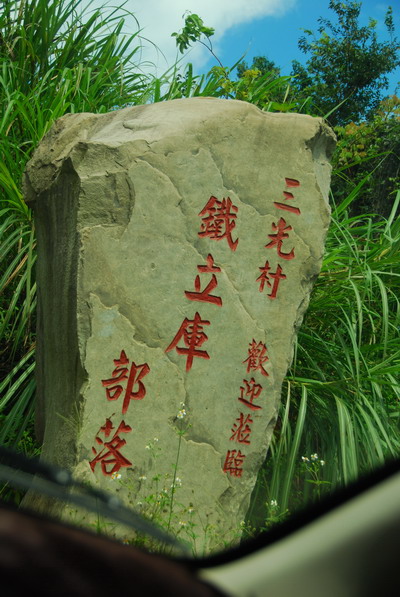 三光村 歡迎蒞臨
鐵立庫
部落